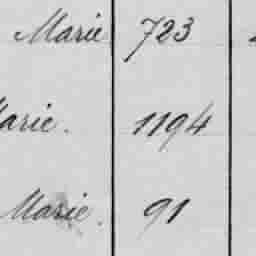 Marie 723
Marie. 1194
Marie. 91